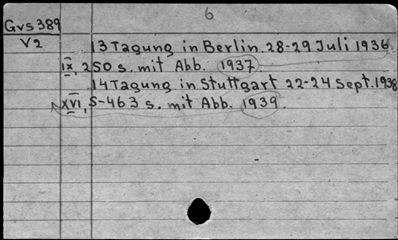 6
Gvs 389
V2 13 Tagung in Berlin. 28-29 Juli 1936.
IX, 250 s. mit Abb. 1937.
14 Tagung in Stuttgart 22-24 Sept. 1938
XVI, 5-463 s. mit Abb. 1939.